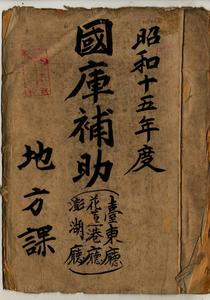 昭和十五年度
國庫補助
臺東廳
花蓮港廳
澎湖廳
地方課